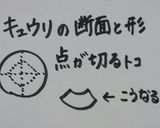 キュウリの断面と形
点が切るトコ
←こうなる